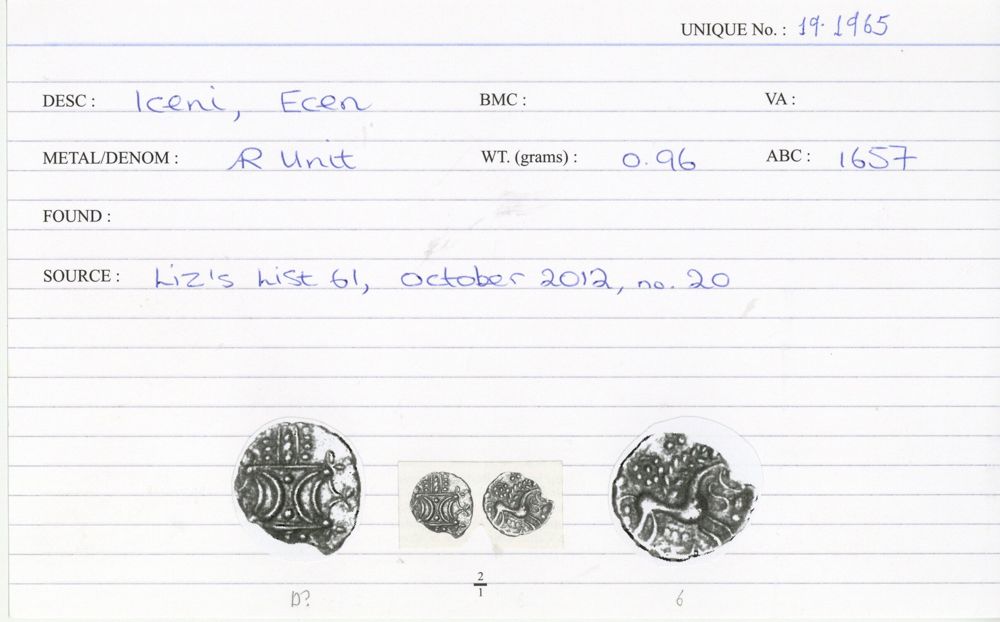 UNIQUE No. : 19.1965
DESC : Iceni, Ecen BMC : VA :
METAL/DENOM : AR Unit WT. (grams) : 0.96 ABC : 1657
FOUND :
SOURCE : Liz's List 61, October 2012, no. 20
2
1
D? 6